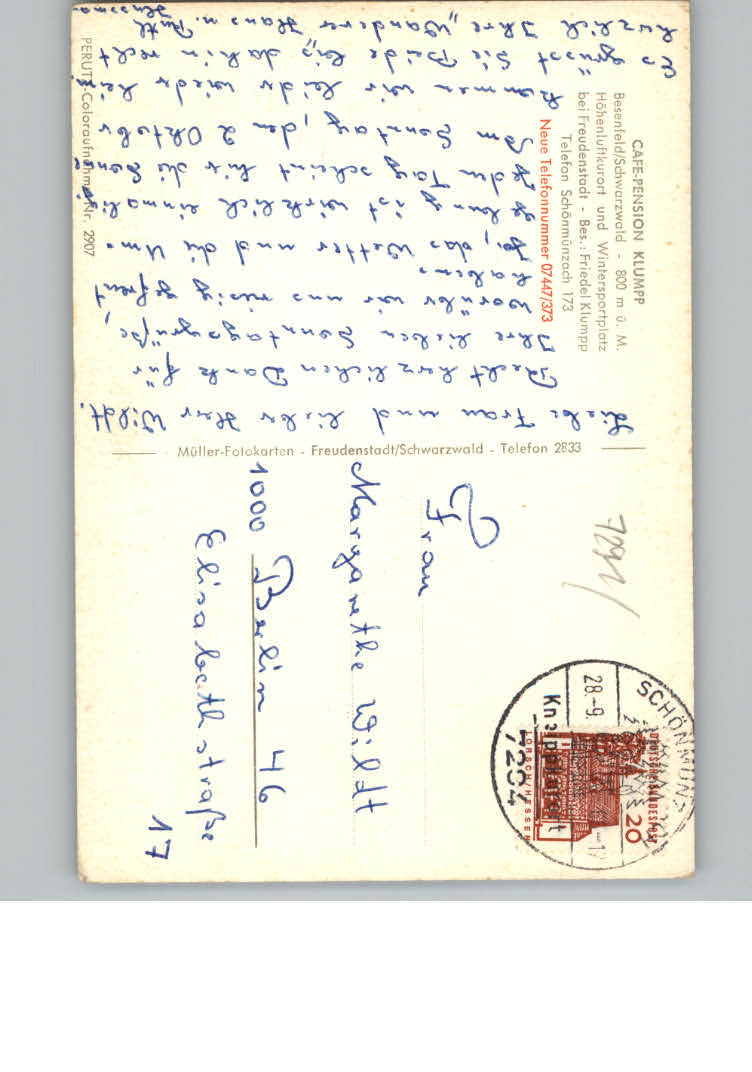 CAFE-PENSION KLUMPP
Besenfeld/Schwarzwald - 800 m ü. M.
Höhenluftkurort und Wintersportplatz
bei Freudenstadt - Bes.: Friedel Klumpp
Telefon Schönmünzach 173
Neue Telefonnummer 07447/373
Liebe Frau und lieber Herr Wildt.
Recht herzlichen Dank für
Ihre lieben Sonntagsgrüße,
worüber wir uns riesig gefreut
haben.
Ja, das Wetter und die Um-
gebung ist wirklich einmalig
jeden Tag scheint hir die Sonne
Am Sonntag, den 2 Oktober
kommen wir leider wieder heim
Es grüsst Sie Beide bis dahin recht
herzlich Ihre "Wanderer Hans u. Ruth
PERUTZ-Coloraufnahme Nr. 2907
Müller-Fotokarten - Freudenstadt/Schwarzwald - Telefon 2833
7291/
Frau
Margarethe Wildt
1000 Berlin 46
Elisabethstraße
17
SCHÖNMÜNZ
28.-9.
Kneippkurort
DEUTSCHE BUNDESPOST
20
LORSCH/HESSEN